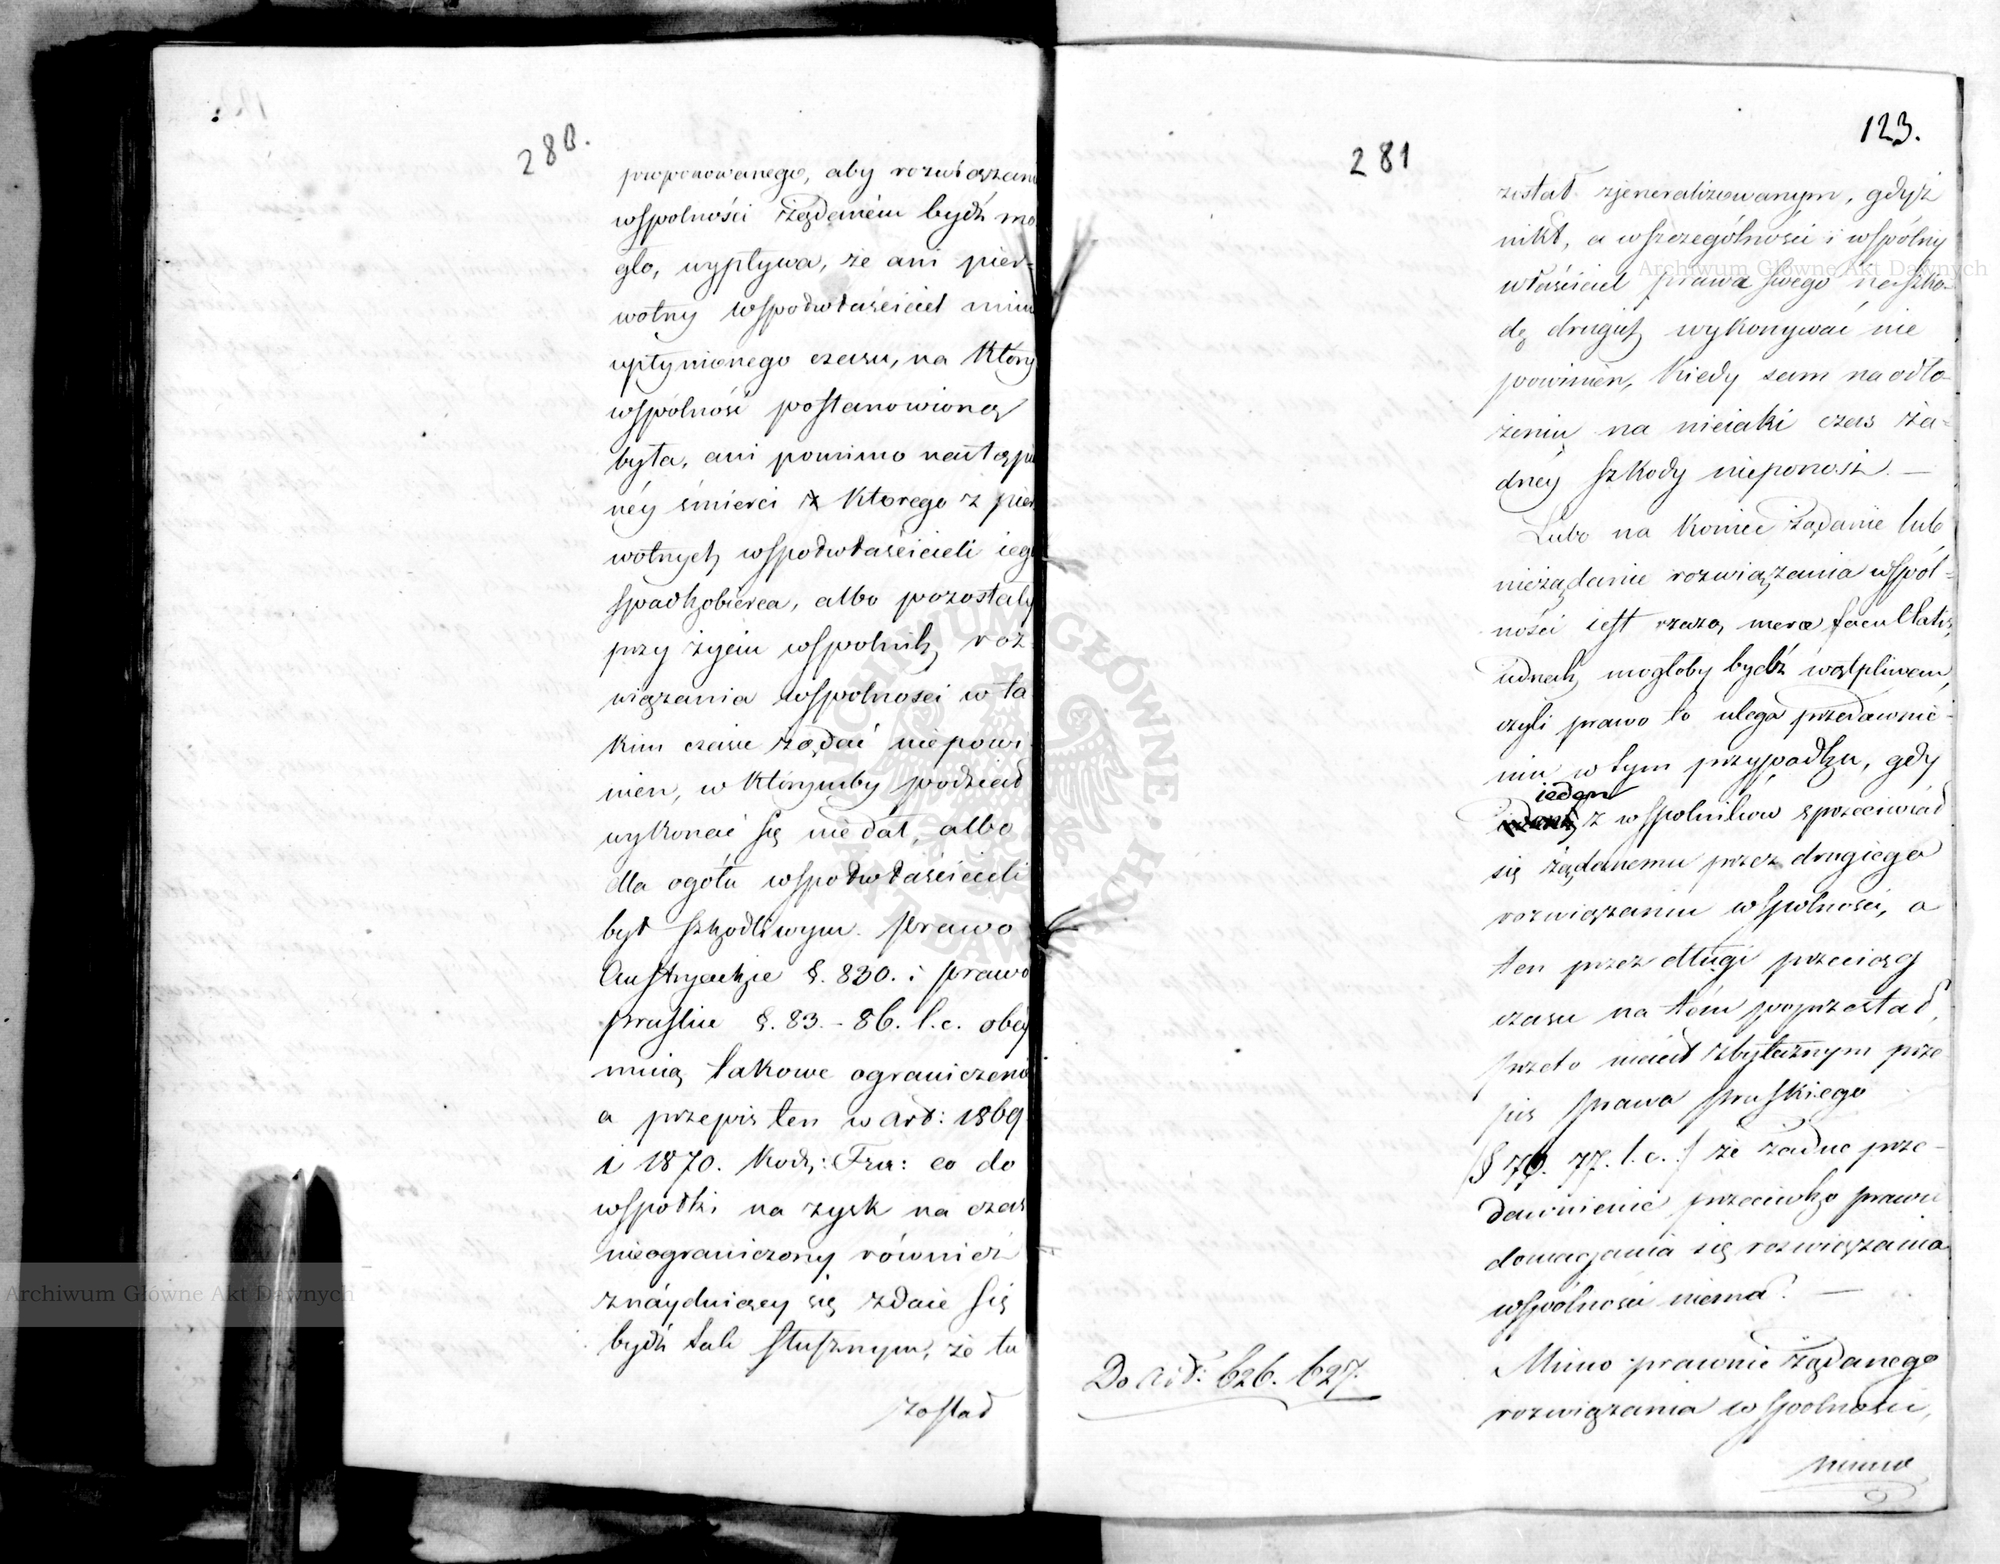 280.
proponowanego, aby rozwiązani
wspolności żądaném bydź mo
gło, wypływa, że ani pier-
wotny wspołwłaściciel mimo
upłynionego czasu, na który
wspólność postanowioną
była, ani pomimo nastąpio
néy śmierci ktorego z pier
wotnych wspołwłaścicieli iego
spadkobierca, albo pozostały
przy życiu wspolnik, roz
wiązania wspolności w ta
kim czasie żądać niepowi
nien, w którymby podział
wykonać się nie dał, albo
dla ogółu wspołwłaścicieli
był szkodliwym. Prawo
Austryackie §. 830. i prawo
pruskie §. 83. - 86. l. c. obey
muią takowe ograniczeni
a przepis ten w Art: 1869
i 1870. Kod: Fra: co do
wspołki na zysk na czas
nieograniczony również
znáyduiący się zdaie się
bydź tak słusznym, że tu
został
123.
281
został zjeneralizowanym, gdyż
nikt, a wszczególności i wspólny
właściciel prawa swego na szko-
dę drugich wykonywać nie
powinien, kiedy sam na odło-
żeniu na nieiaki czas ża-
dnéy szkody nieponosi. —
Lubo na koniec żądanie lub
nieżądanie rozwiązania wspól-
ności iest rzeczą meræ facultatis,
iednak mogłoby bydź wątpliwem,
czyli prawo to ulega przedawnie-
niu w tym przypadku, gdy
ieden
z wspolników sprzeciwiał
się żądanemu przez drugiego
rozwiązaniu wspolności, a
ten przez długi przeciąg
czasu na tém poprzestał,
przeto nieiest zbytecznym prze
pis prawa pruskiego
(§ 76. 77. l. c.) że żadne prze-
dawnienie przeciwko prawu
domagania się rozwiązania
wspólności niema. —
Do Art: 626. 627.
Mimo prawnie żądanego
rozwiązania wspolności,
mimo
Archiwum Główne Akt Dawnych
Archiwum Główne Akt Dawnych
ARCHIWUM GŁÓWNE AKT DAWNYCH